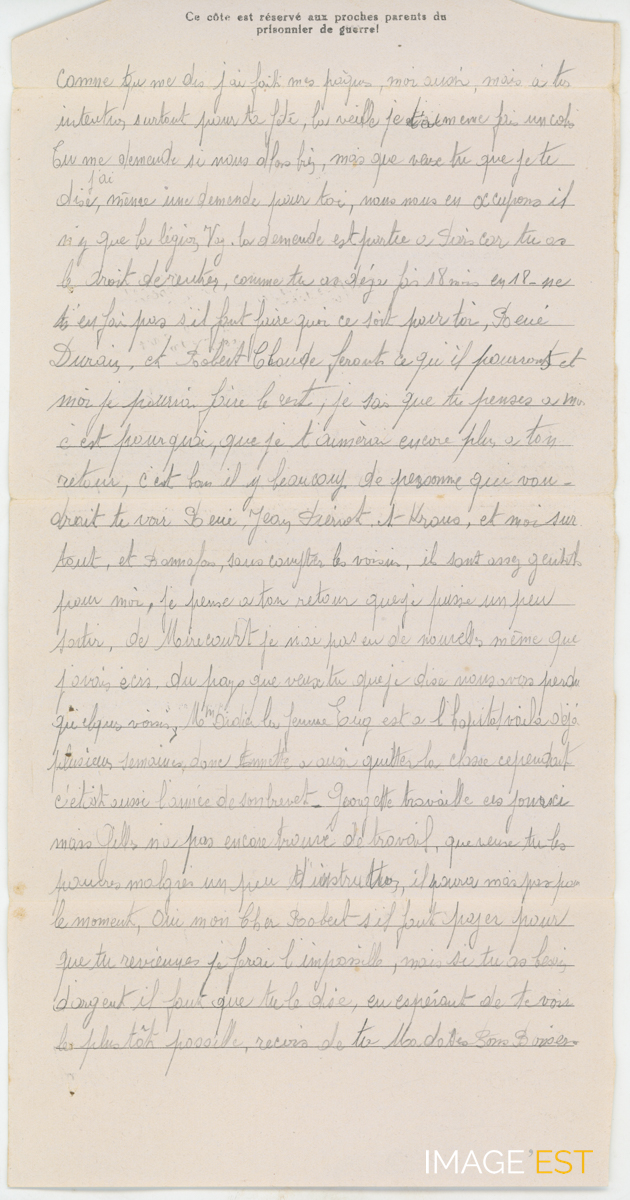 Ce côte est réservé aux proches parents du
prisonnier de guerre!
comme tu me dis j'ai fait mes pâques, moi aussi, mais à tes
intentions surtout pour ta fête, la veille je t'ai meme fais un colis
Tu me demende si nous allons bien, mais que veux tu que je te
j'ai
dise, même une demende pour toi, nous nous en occupons il
n'y que la légion, la demende est partie a Paris car tu as
le droit de rentrer, comme tu as déja fais 18 mois en 18 - ne
t'en fai pas s'il faut faire quoi ce soit pour toi, René
Durain, et Robert Claude feronts ce qu'il pourronts et
moi je pourrai faire le rest, je sais que tu penses a moi
c'est pourquoi, que je t'aimerai encore plus a ton
retour, c'est bon il y beaucoup de personne qui vou-
drait te voir René, Jean, et Kraus, et moi sur
tout, et sans compter les voisin, il sont assez gentils
pour moi, je pense a ton retour que je puisse un peu
sortir, de Mirecourt je n'ai pas eu de nouvelles même que
j'avais ecris, du pays que veux tu que je dise nous avons perdu
quelques voisins, Mme Didier la femme est a l'hopital voila déjà
plusieurs semaines, donc Annette a aussi quitter la classe cependant
c'était aussi l'année de son brevet - Georgette travaille ces jours ci
mais n'a pas encore trouvé de travail, que veux tu les
pauvres malgres un peu d'instruction, il pas pour
le moment, Oui mon Cher Robert s'il faut payer pour
que tu reviennes je ferai l'impossible, mais si tu as besoin
d'argent il faut que tu le dise, en espérant de te voir
le plus tôt possible, recois de ta Mado tes Bons Baisers
IMAGE'EST